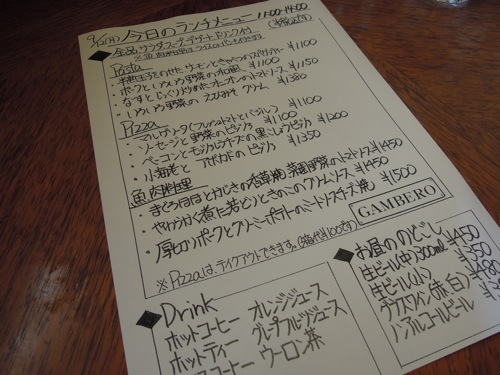 9/12(月) 今日のランチメニュー 11:00-14:00
◆全品 サラダ・スープ・デザート・ドリンク付 (税込です)
※魚・肉料理は ライスorパンも付きます
Pasta
・半熟玉子をのせた サーモンときのこの ¥1100
・ポークといろいろ野菜の和風 ¥1100
・なすと じっくり炒めたオニオンのトマトソース ¥1150
・いろいろ野菜の えびみそ クリーム ¥1380
Pizza
・マルゲリータ(フレッシュトマトとバジル) ¥1100
・ソーセージと 野菜のピッツァ ¥1100
・ベーコンと モッツァレラチーズの 黒こしょうピッツァ ¥1200
・小海老と アボカドの ピッツァ ¥1350
魚・肉料理
・まぐろほほ肉とかじきの香草焼 菜園野菜のトマトソース ¥1450
・やわらかく煮た若どりときのこのクリームソース ¥1450
・厚切りポークとクリーミーポテトのミートソースチーズ焼 ¥1500
※Pizzaは、テイクアウトできます。(箱代¥100です)
GAMBERO
◆Drink
ホットコーヒー オレンジジュース
ホットティー グレープフルーツジュース
コーヒー ウーロン茶
◆お昼ののどごし
生ビール(中)300ml ¥450
生ビール(小) ¥350
グラスワイン(赤・白)
ノンアルコールビール